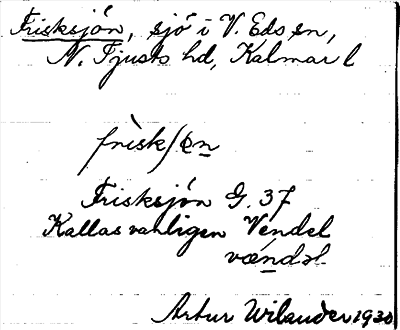 Frisksjön, sjö i V. Eds sn,
N. Tjusts hd, Kalmar l
frisk/ön
Frisksjön G. 37
Kallas vanligen Vendel
vændəl
Artur Wilander 1930